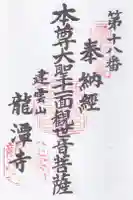 第十八番
奉納經
本尊大聖十一面觀世音菩薩
建雲山
龍潭寺